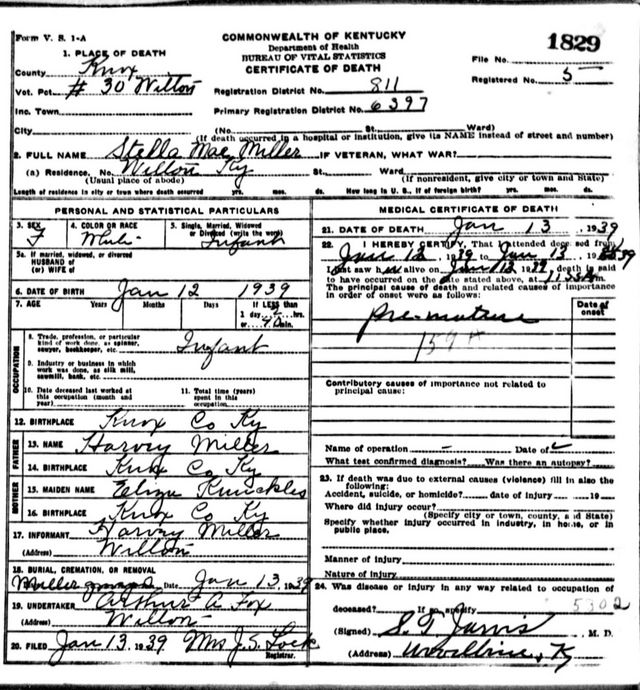 Form V. S. 1-A
COMMONWEALTH OF KENTUCKY
Department of Health
BUREAU OF VITAL STATISTICS
CERTIFICATE OF DEATH
1829
File No.
Registered No. 5
1. PLACE OF DEATH
County Knox
Vot. Pct. # 30 Wilton
Inc. Town
City
Registration District No. 811
Primary Registration District No. 6397
(No. St. Ward)
(If death occurred in a hospital or institution, give its NAME instead of street and number)
2. FULL NAME Stella Mae Miller IF VETERAN, WHAT WAR?
(a) Residence. No. Wilton Ky St. Ward
(Usual place of abode) (If nonresident, give city or town and State)
Length of residence in city or town where death occurred yrs. mos. ds. How long in U. S., if of foreign birth? yrs. mos. ds.
PERSONAL AND STATISTICAL PARTICULARS
3. SEX F
4. COLOR OR RACE
5. Single, Married, Widowed or Divorced (write the word) Infant
5a. If married, widowed, or divorced
HUSBAND of
(or) WIFE of
6. DATE OF BIRTH Jan 12 1939
7. AGE Years Months Days If LESS than
1 day hrs.
or min.
OCCUPATION
8. Trade, profession, or particular
kind of work done, as spinner,
sawyer, bookkeeper, etc. Infant
9. Industry or business in which
work was done, as silk mill,
sawmill, bank, etc.
10. Date deceased last worked at
this occupation (month and
year)
11. Total time (years)
spent in this
occupation
12. BIRTHPLACE Knox Co Ky
FATHER
13. NAME Harvy Miller
14. BIRTHPLACE Knox Co Ky
MOTHER
15. MAIDEN NAME Eliza Knuckles
16. BIRTHPLACE Knox Co Ky
17. INFORMANT Harvy Miller
(Address) Wilton
18. BURIAL, CREMATION, OR REMOVAL
Miller Date Jan 13, 1939
19. UNDERTAKER Arthur A Fox
(Address) Wilton
20. FILED Jan 13, 1939 Mrs J. S. Lock
Registrar.
MEDICAL CERTIFICATE OF DEATH
21. DATE OF DEATH Jan 13, 1939
22. I HEREBY CERTIFY, That I attended deceased from
Jan 12, 1939 to Jan 13, 1939
I last saw h alive on Jan 12 1939, death is said
to have occurred on the date stated above, at
The principal cause of death and related causes of importance
in order of onset were as follows:
Date of onset
Pre-mature
159
Contributory causes of importance not related to
principal cause:
Name of operation - Date of
What test confirmed diagnosis? Was there an autopsy?
23. If death was due to external causes (violence) fill in also the
following:
Accident, suicide, or homicide? date of injury 19
Where did injury occur?
(Specify city or town, county, and State)
Specify whether injury occurred in industry, in home, or in
public place.
Manner of injury
Nature of injury
24. Was disease or injury in any way related to occupation of
deceased? If so, specify 5302
(Signed) S. T. Jarvis M. D.
(Address) Ky